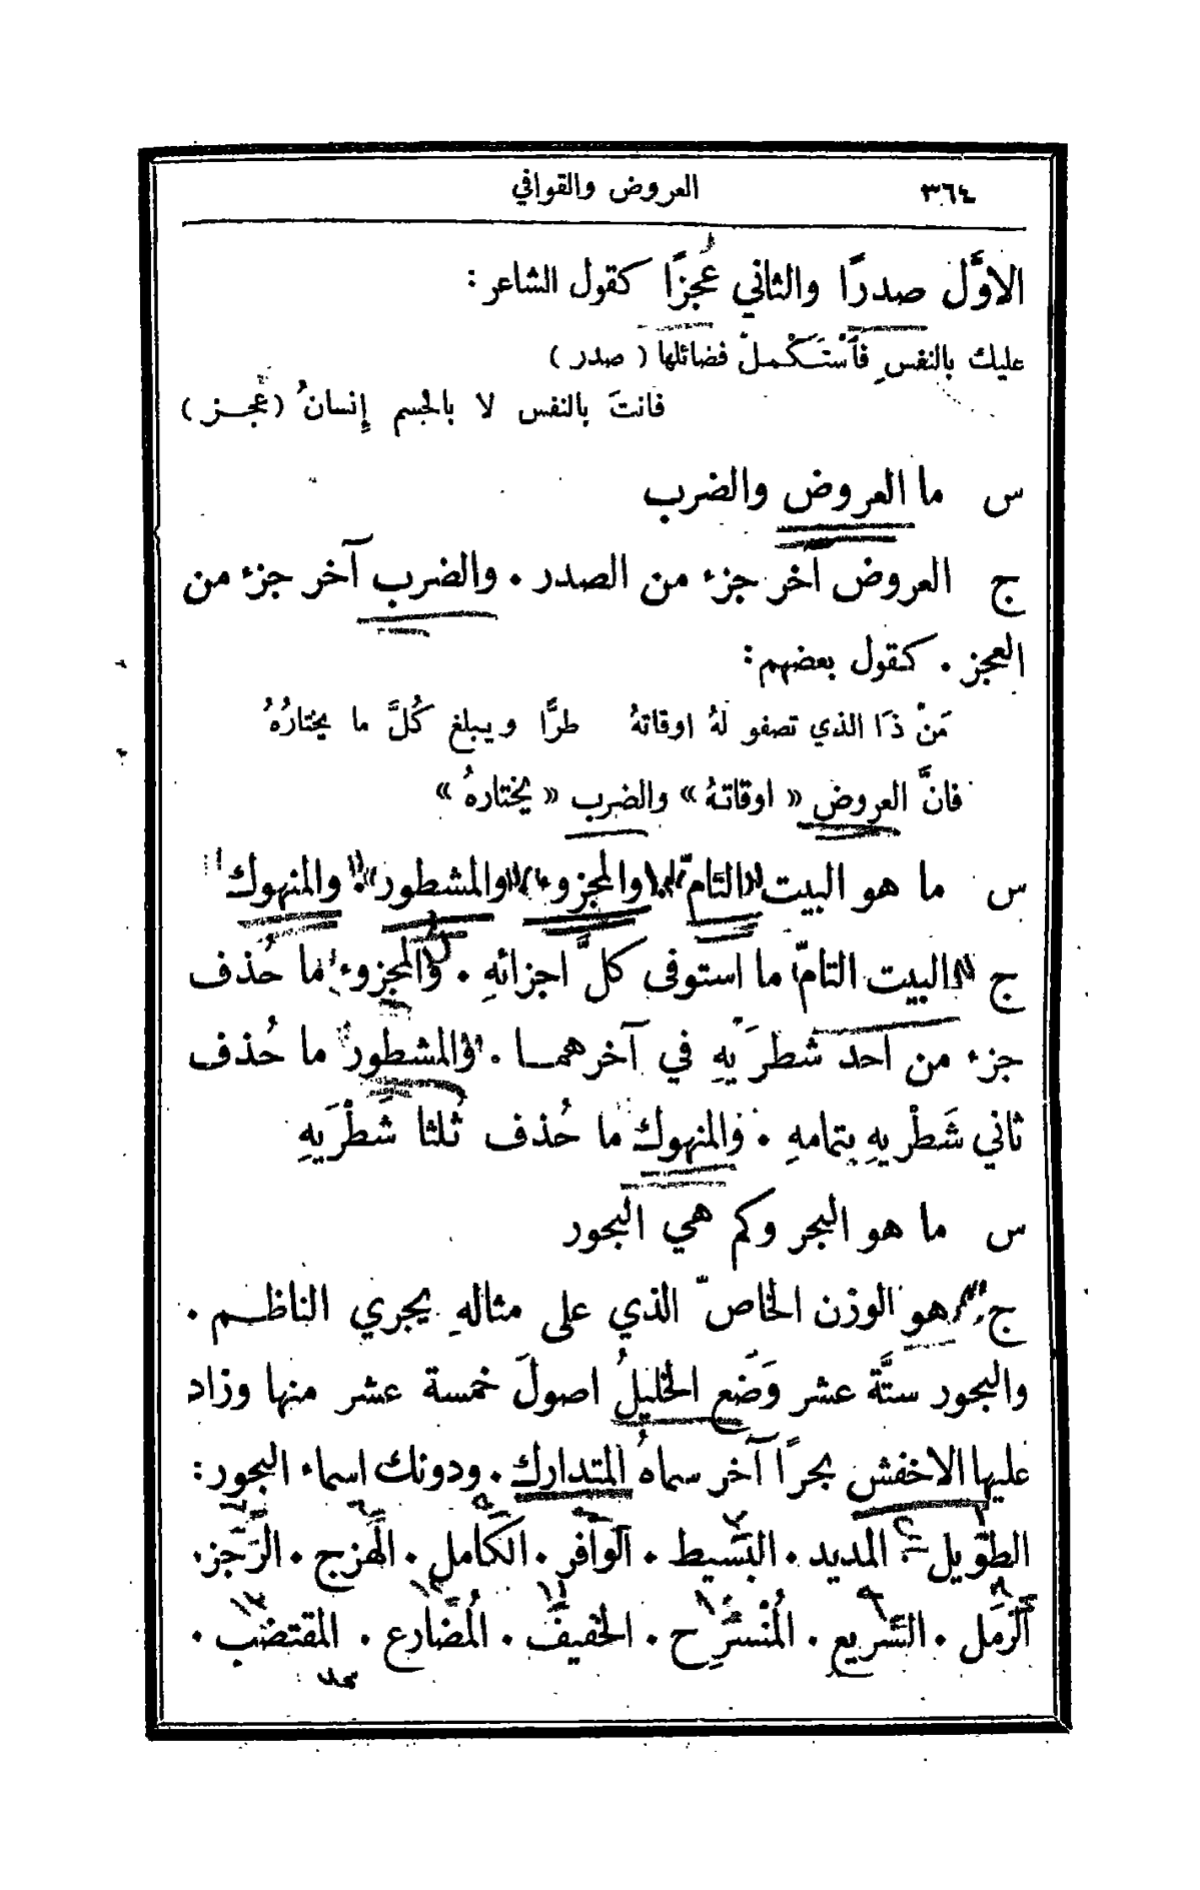 ٣٦٤ العروض والقوافي
الاوَّل صدرًا والثاني عُجزًا كقول الشاعر :
عليك بالنفسِ فٱسْتَكْملْ فضائلها ( صدر )
فانتَ بالنفس لا بالجسم إِنسانُ ( عُجز )
س ما العروض والضرب
ج العروض آخر جزء من الصدر . والضرب آخر جزء من
العجز . كقول بعضهم :
مَنْ ذَا الذي تصفو لهُ اوقاتهُ طرًّا ويبلغ كُلَّ ما يختارُهُ
فانَّ العروض « اوقاتهُ » والضرب « يختارهُ »
س ما هو البيت التامّ والمجزوء والمشطور والمنهوك
ج البيت التامّ ما استوفى كلَّ اجزائهِ . والمجزوء ما حُذف
جزء من احد شطرَيهِ في آخرهما . والمشطور ما حُذف
ثاني شَطْريهِ بتمامهِ . والمنهوك ما حُذف ثلثا شَطْرَيهِ
س ما هو البحر وكم هي البحور
ج هو الوزن الخاصّ الذي على مثالهِ يجري الناظم .
والبحور ستَّة عشر وَضَع الخليلُ اصولَ خمسة عشر منها وزاد
عليها الاخفش بحرًا آخر سماهُ المتدارك . ودونك اسماء البحور :
الطَّويل . المديد . البَسيط . الوَافر . الكَامل . الهَزج . الرَّجز .
الرَّمل . السَّريع . المُنْسَرِح . الخفيف . المُضَارع . المقتضب .